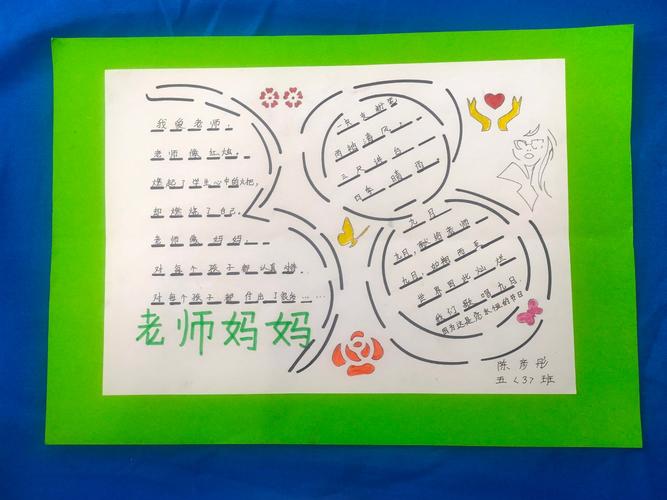 我爱老师，
老师像红烛，
燃起了学生心中的火把，
却燃烧了自己。
老师像妈妈，
对每个孩子都认真对待，
对每个孩子都付出了教台……
老师妈妈
一支粉笔
两袖清风，
三尺讲台
四季晴雨
九月
九月，献给老师
九月，如期而至
世界因此灿烂
我们歌唱九月
因为这是您永恒的节日
陈彦彤
五〈3〉班